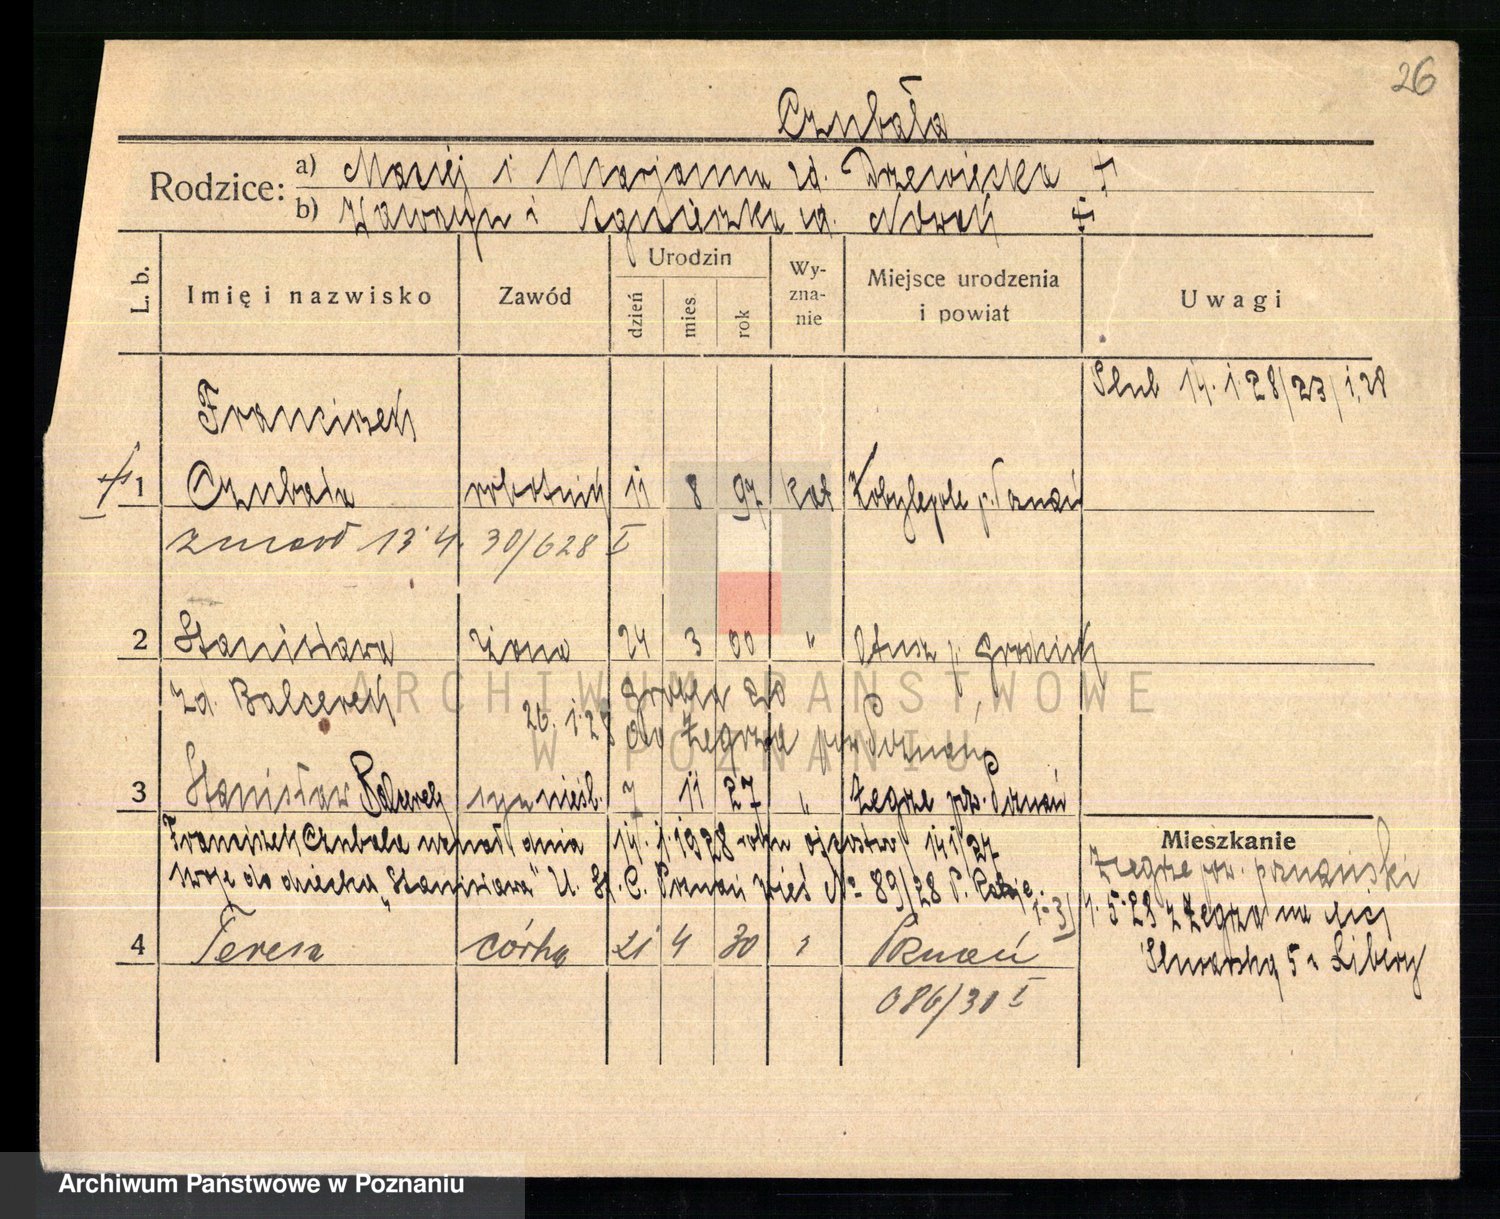 26
Czubała
Rodzice:
a) Maciej i Marjanna zd. Drzewiecka ++
b) Wawrzyn i Agnieszka zd. Nowak
L. b.
Imię i nazwisko
Zawód
Urodzin
dzień
mies.
rok
Wy-
zna-
nie
Miejsce urodzenia
i powiat
Uwagi
Ślub 14. 1. 28/23/1.28
Franciszek
1 Czubała robotnik 11 8 97 kat Kobylepole p. Poznań
zmarł 13.4. 30/628 I
2 Stanisława żona 24 3 00 " Otusz p. Grodzisk
zd. Balcerek
26. 1. 28 do Żegrza pow Poznań
3 Stanisław Balcerek syn nieśl. 7 11 27 " Żegrze pow. Poznań
Franciszek Czubała uznał dnia 14. 1. 1928 roku ojcostwo
swoje do dziecka „Stanisława" U. St. C. Poznań wieś No 89/28
4 Teresa córka 21 4 30 " Poznań
686/30 I
Mieszkanie
Żegrze pow. poznański
1. 5. 28 z Żegrza na
5
ARCHIWUM PAŃSTWOWE
W POZNANIU
Archiwum Państwowe w Poznaniu